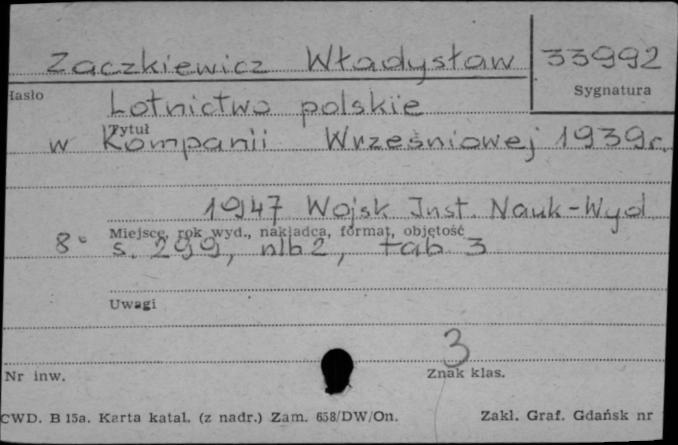 Zaczkiewicz Władysław 33992
Hasło Sygnatura
Lotnictwo polskie
Tytuł
w Kompanii Wrześniowej 1939r.
1947 Wojsk Inst. Nauk-Wyd
Miejsce, rok wyd., nakładca, format, objętość
8° s. 299, nlb2, tab 3
Uwagi
3
Nr inw. Znak klas.
CWD. B 15a. Karta katal. (z nadr.) Zam. 658/DW/On. Zakl. Graf. Gdańsk nr